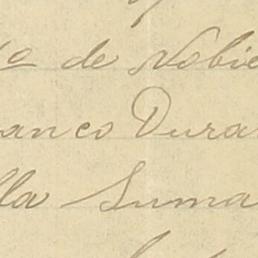 de Nobie
anco Dura
lla Suma